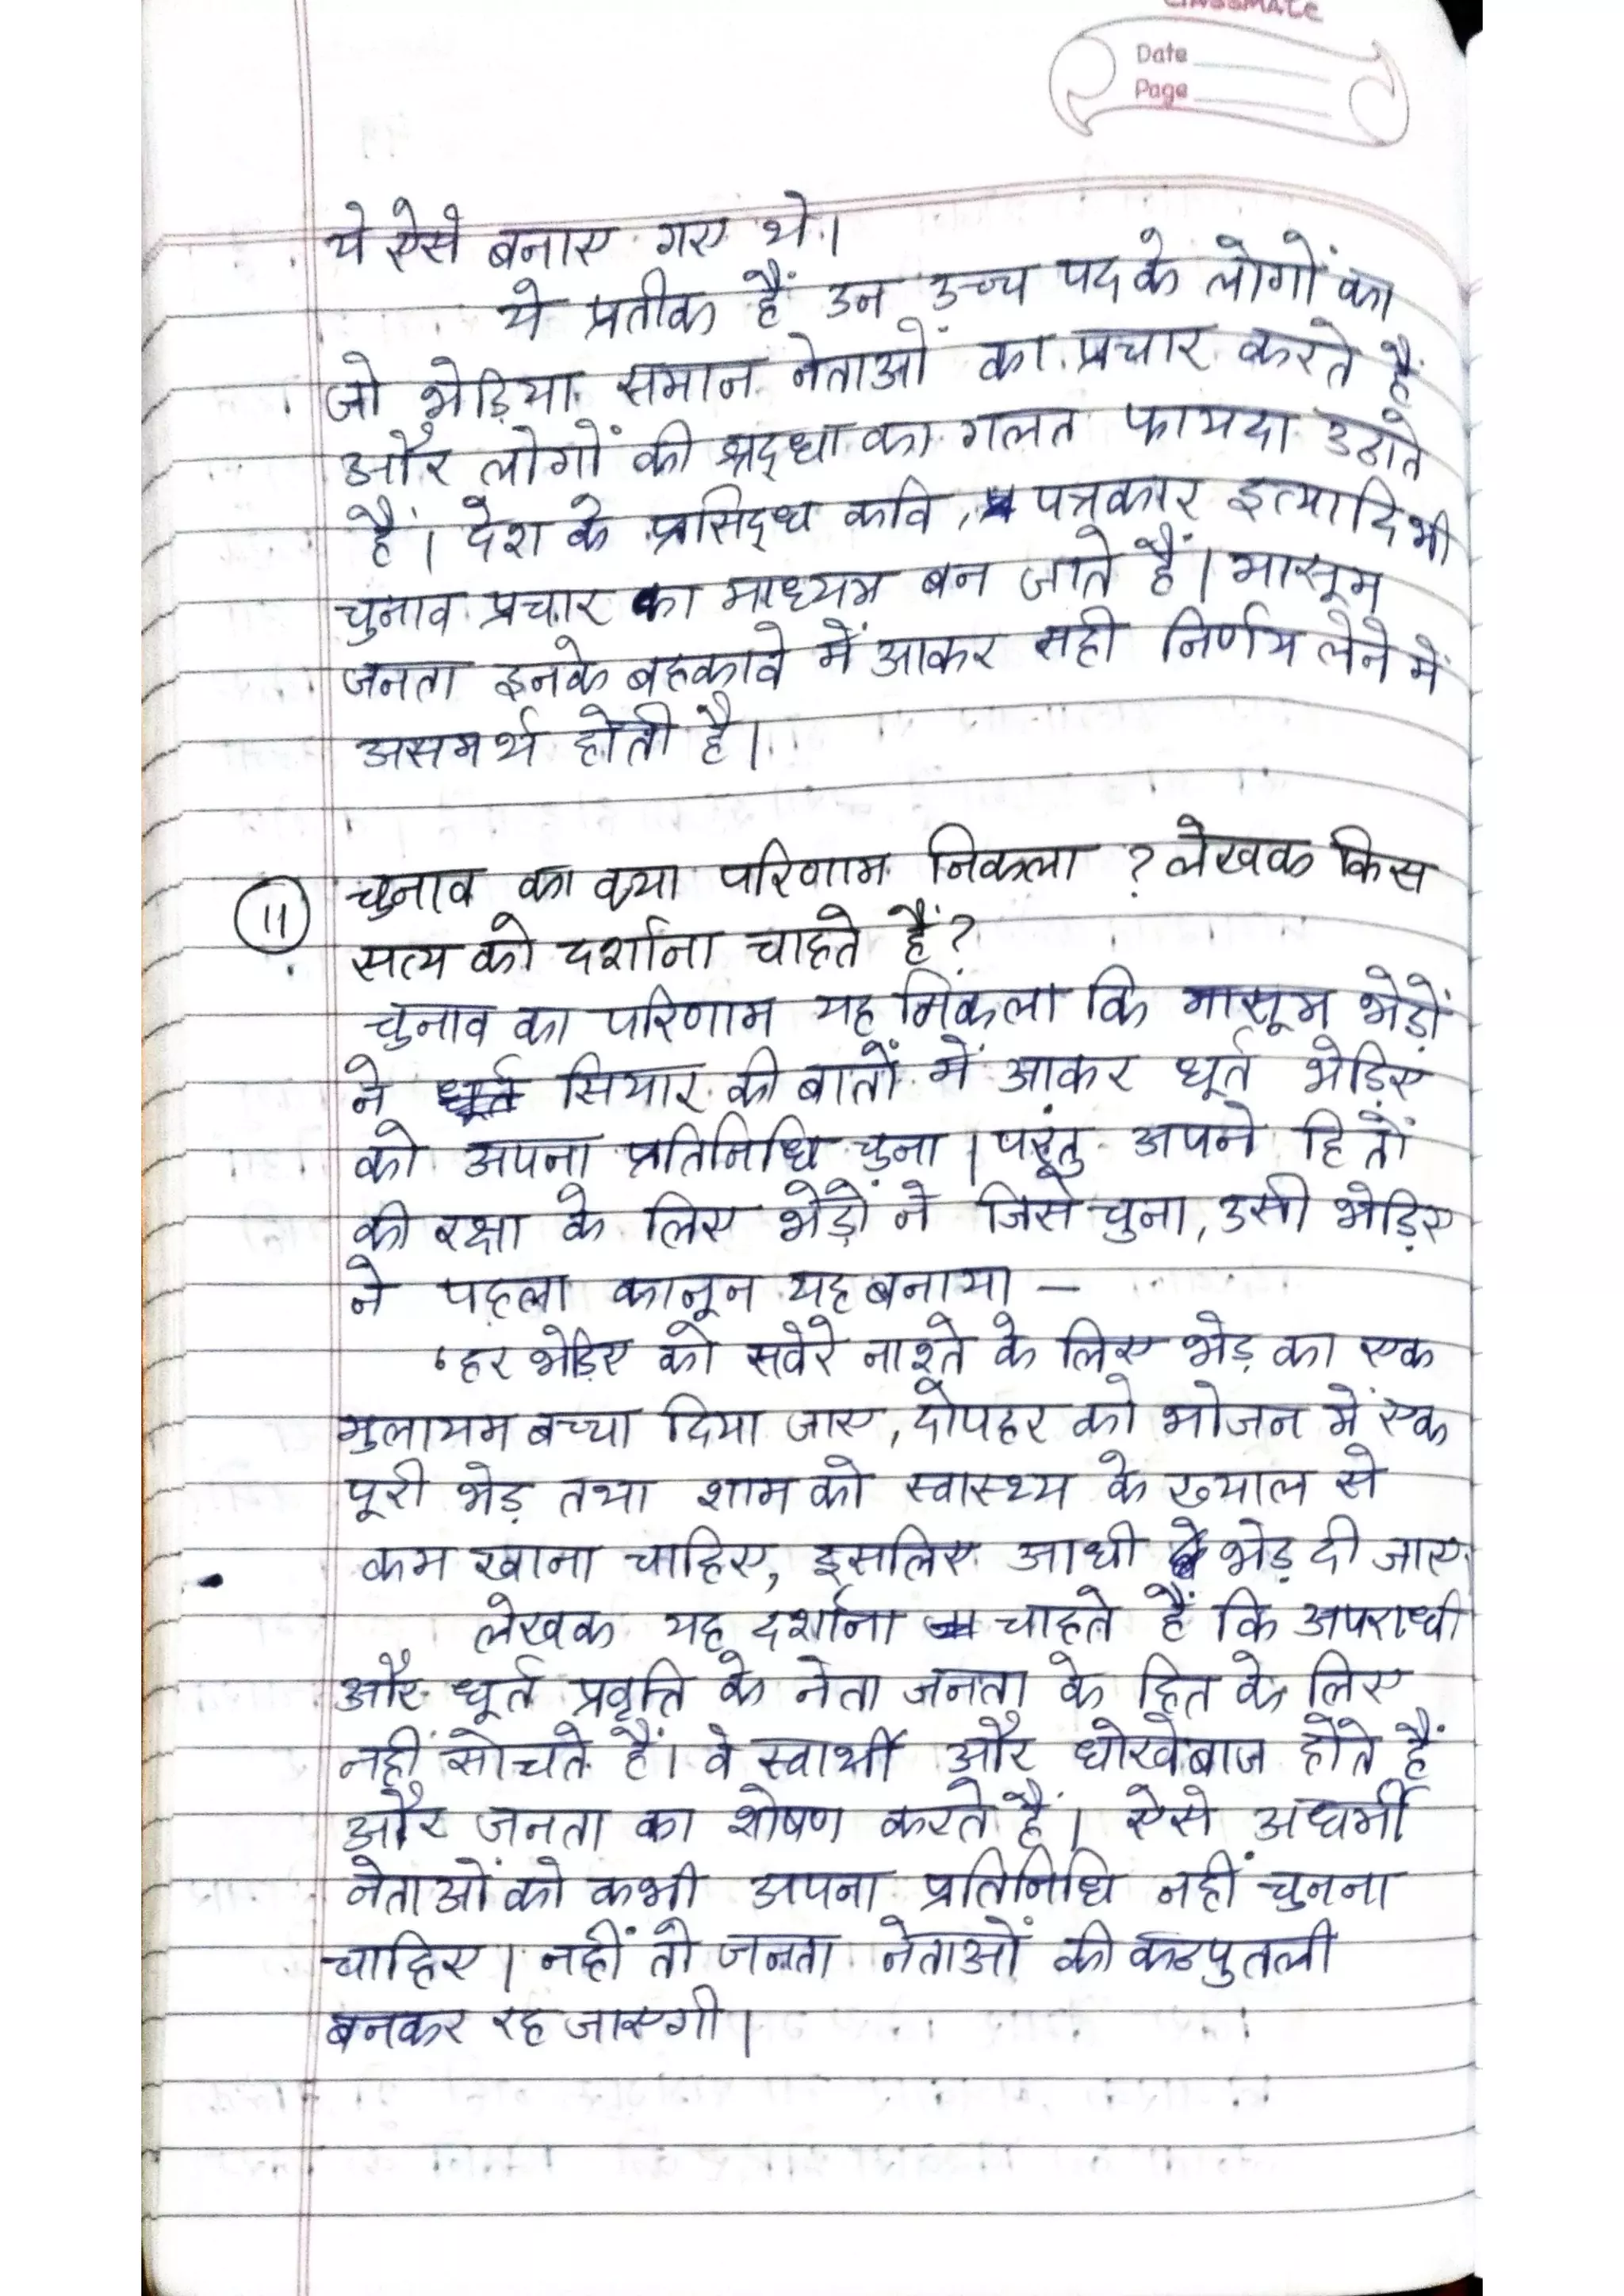 classmate
Date
Page
ये ऐसे बनाए गए थे।
ये प्रतीक हैं उन उच्च पद के लोगों का
जो भेड़िया समान नेताओं का प्रचार करते हैं
और लोगों की श्रद्धा का गलत फायदा उठाते
हैं। देश के प्रसिद्ध कवि, पत्रकार इत्यादि भी
चुनाव प्रचार का माध्यम बन जाते हैं। मासूम
जनता इनके बहकावे में आकर सही निर्णय लेने में
असमर्थ होती है।
11 चुनाव का क्या परिणाम निकला ? लेखक किस
सत्य को दर्शाना चाहते हैं?
चुनाव का परिणाम यह निकला कि मासूम भेड़ों
ने धूर्त सियार की बातों में आकर धूर्त भेड़िए
को अपना प्रतिनिधि चुना। परंतु अपने हितों
की रक्षा के लिए भेड़ों ने जिसे चुना, उसी भेड़िए
ने पहला कानून यह बनाया —
'हर भेड़िए को सवेरे नाश्ते के लिए भेड़ का एक
मुलायम बच्चा दिया जाए, दोपहर को भोजन में एक
पूरी भेड़ तथा शाम को स्वास्थ्य के ख्याल से
कम खाना चाहिए, इसलिए आधी भेड़ दी जाए
लेखक यह दर्शाना चाहते हैं कि अपराधी
और धूर्त प्रवृत्ति के नेता जनता के हित के लिए
नहीं सोचते हैं। वे स्वार्थी और धोखेबाज होते हैं
और जनता का शोषण करते हैं। ऐसे अधर्मी
नेताओं को कभी अपना प्रतिनिधि नहीं चुनना
चाहिए। नहीं तो जनता नेताओं की कठपुतली
बनकर रह जाएगी।